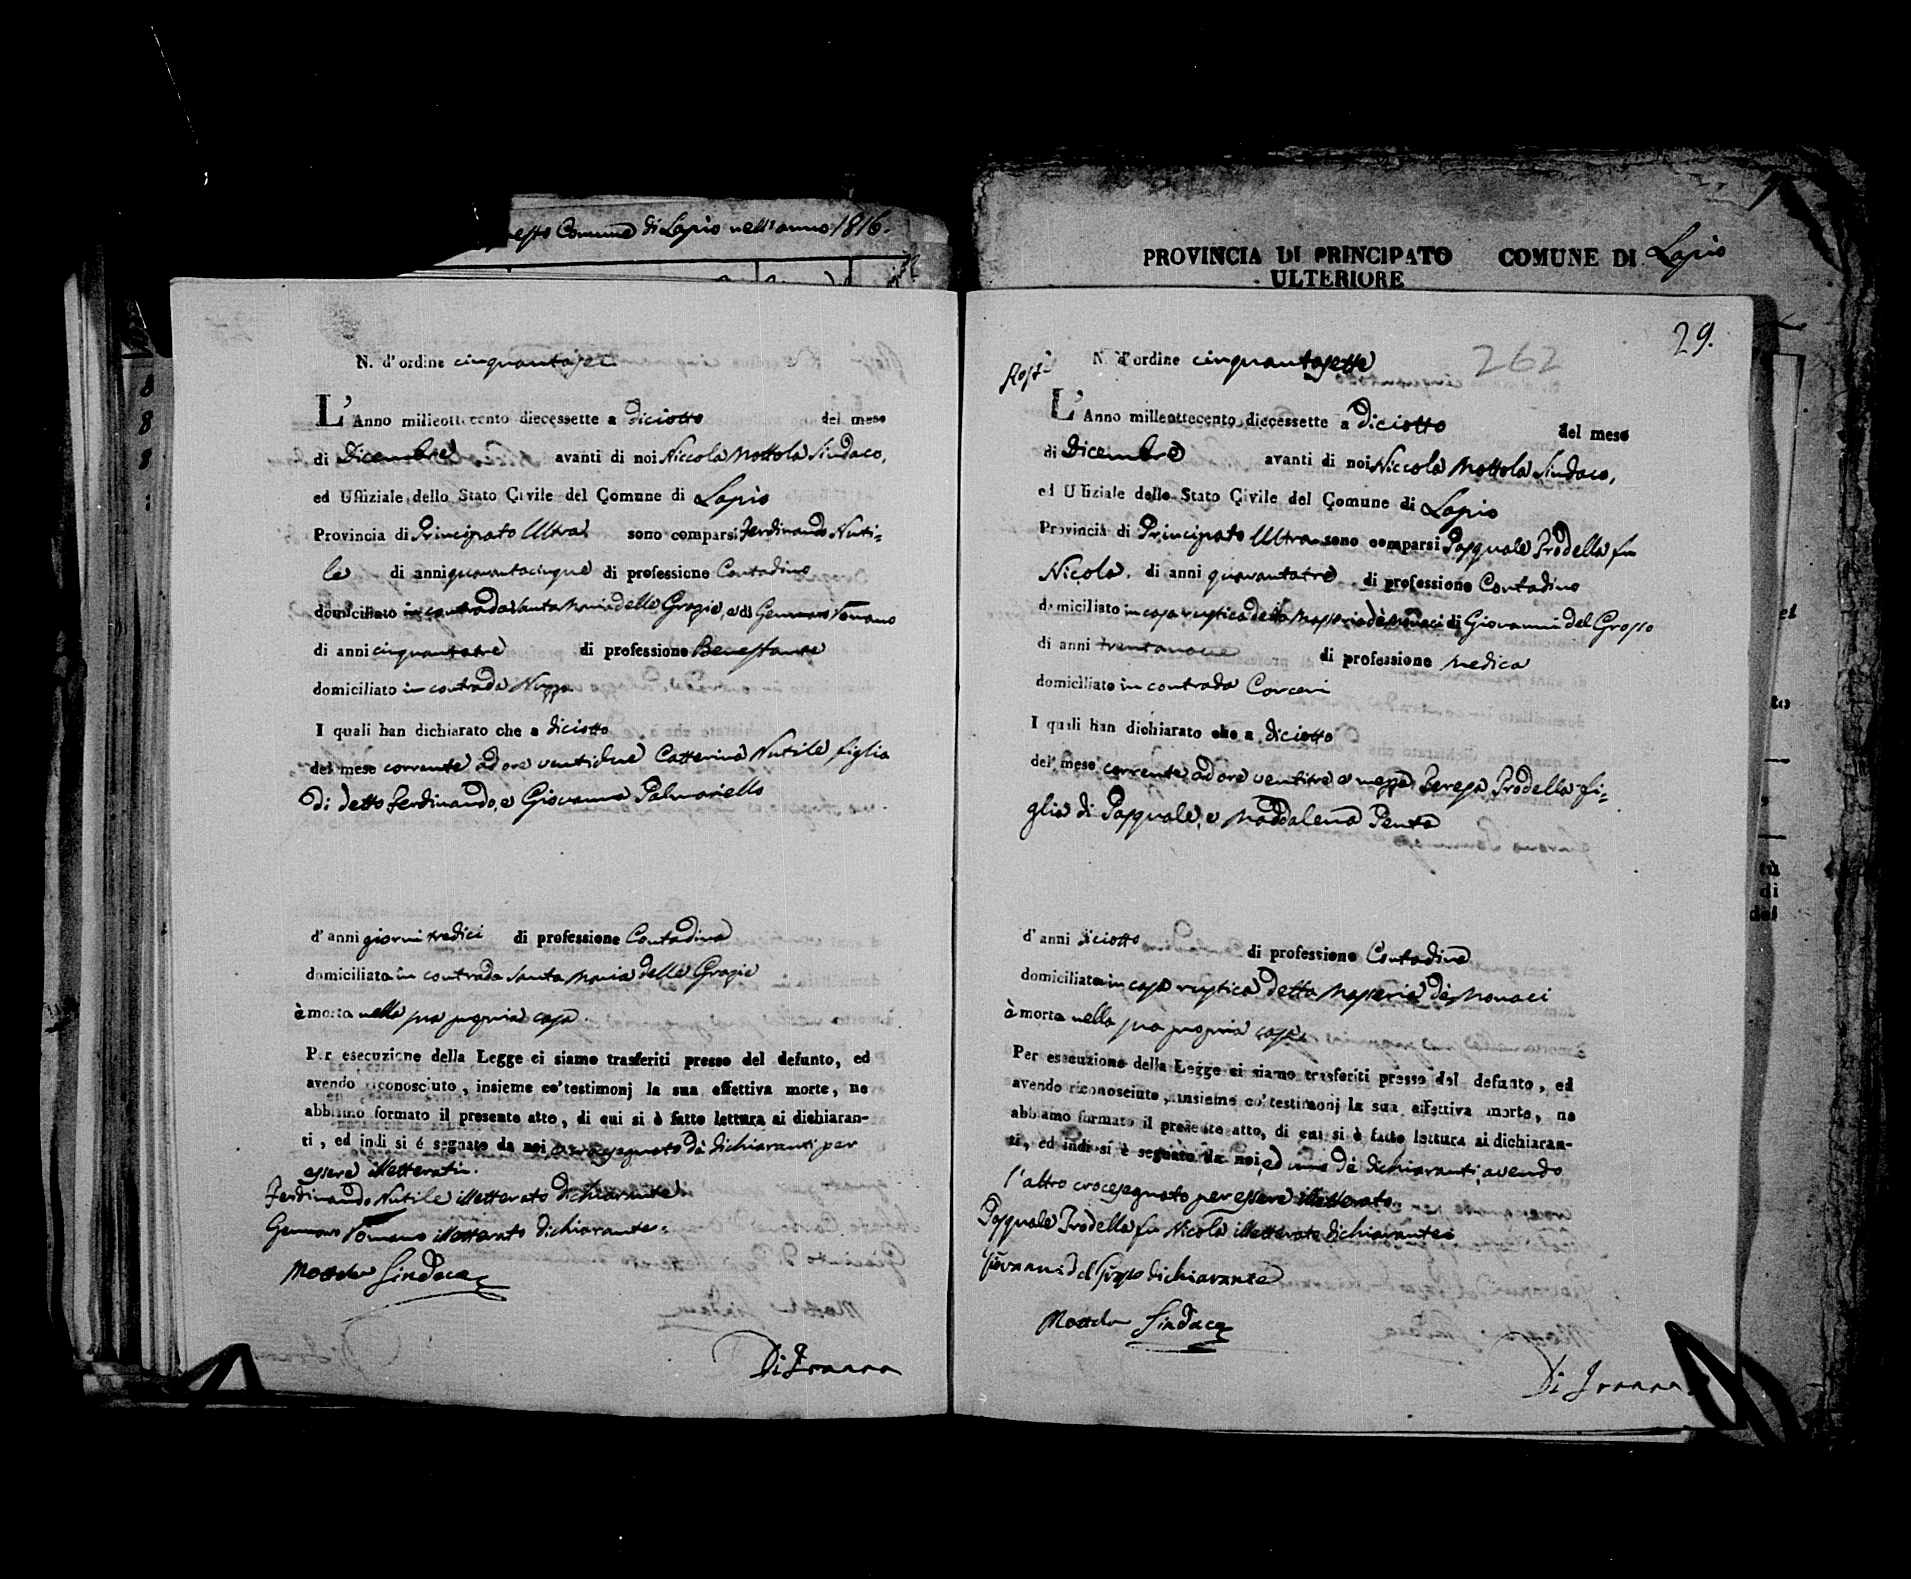 Comune di Lapio nell'anno 1816.
PROVINCIA DI PRINCIPATO
ULTERIORE
COMUNE DI Lapio
N. d'ordine cinquantasei
L'Anno milleottocento diecessette a diciotto del mese
di Dicembre avanti di noi Niccola Mottola Sindaco,
ed Uffiziale dello Stato Civile del Comune di Lapio
Provincia di Principato Ultra sono comparsi Ferdinando Nuti=
le di anni quarantacinque di professione Contadino
domiciliato in contrada Santa Maria delle Grazie, e di Gennaro Romano
di anni cinquantatre di professione Benestante
domiciliato in contrada
I quali han dichiarato che a diciotto
del mese corrente ad ore ventidue Catterina Nutile figlia
di detto Ferdinando, e Giovanna Palmariello
d'anni giorni tredici di professione Contadina
domiciliata in contrada Santa Maria delle Grazie
è morta nella sua propria casa.
Per esecuzione della Legge ci siamo trasferiti presso del defunto, ed
avendo riconosciuto, insieme co'testimonj la sua effettiva morte, ne
abbiamo formato il presente atto, di cui si è fatto lettura ai dichiaran-
ti, ed indi si è segnato da noi e crocesegnato dè dichiaranti per
essere illetterati.
Ferdinando Nutile illetterato dichiarante
Gennaro Romano illetterato dichiarante=
Mottola Sindaco
Di Iranna
29.
262
N. d'ordine cinquantasette
L'Anno milleottocento diecessette a diciotto del mese
di Dicembre avanti di noi Niccola Mottola Sindaco,
ed Uffiziale dello Stato Civile del Comune di Lapio
Provincia di Principato Ultra sono comparsi Pasquale Trodella fu
Nicola, di anni quarantatre di professione Contadino
domiciliato in casa rustica detta Masseria dè Monaci di Giovanni del Grosso
di anni trentanove di professione Medico
domiciliato in contrada Carceri
I quali han dichiarato che a diciotto
del mese corrente ad ore ventitre e mezza Teresa Trodella fi=
glia di Pasquale, e Maddalena Penta
d'anni diciotto di professione Contadina
domiciliata in casa rustica detta Masseria dè Monaci
è morta nella sua propria casa.
Per esecuzione della Legge ci siamo trasferiti presso del defunto, ed
avendo riconosciuto, insieme co'testimonj la sua effettiva morte, ne
abbiamo formato il presente atto, di cui si è fatto lettura ai dichiaran-
ti, ed indi si è segnato da noi, ed uno dè dichiaranti, avendo
l'altro crocesegnato per essere illetterato.
Pasquale Trodella fu Nicola illetterato dichiarante
Giovanni del Grosso dichiarante
Mottola Sindaco
Di Iranna